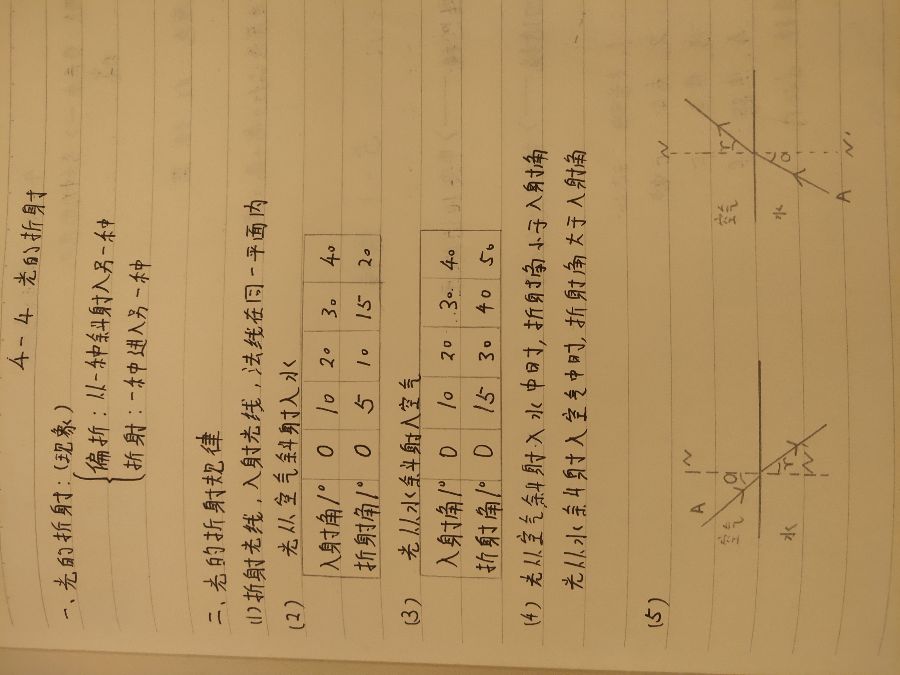 4-4 光的折射
一、光的折射：(现象)
偏折：从一种斜射入另一种
折射：一种进入另一种
二、光的折射规律
(1) 折射光线，入射光线，法线在同一平面内
(2) 光从空气斜射入水
入射角/° 0 10 20 30 40
折射角/° 0 5 10 15 20
(3) 光从水斜射入空气
入射角/° 0 10 20 30 40
折射角/° 0 15 30 40 50
(4) 光从空气斜射入水中时，折射角小于入射角
光从水斜射入空气中时，折射角大于入射角
(5)
A N
空气 a
水 r
N'
N
空气 r
水 a
A N'